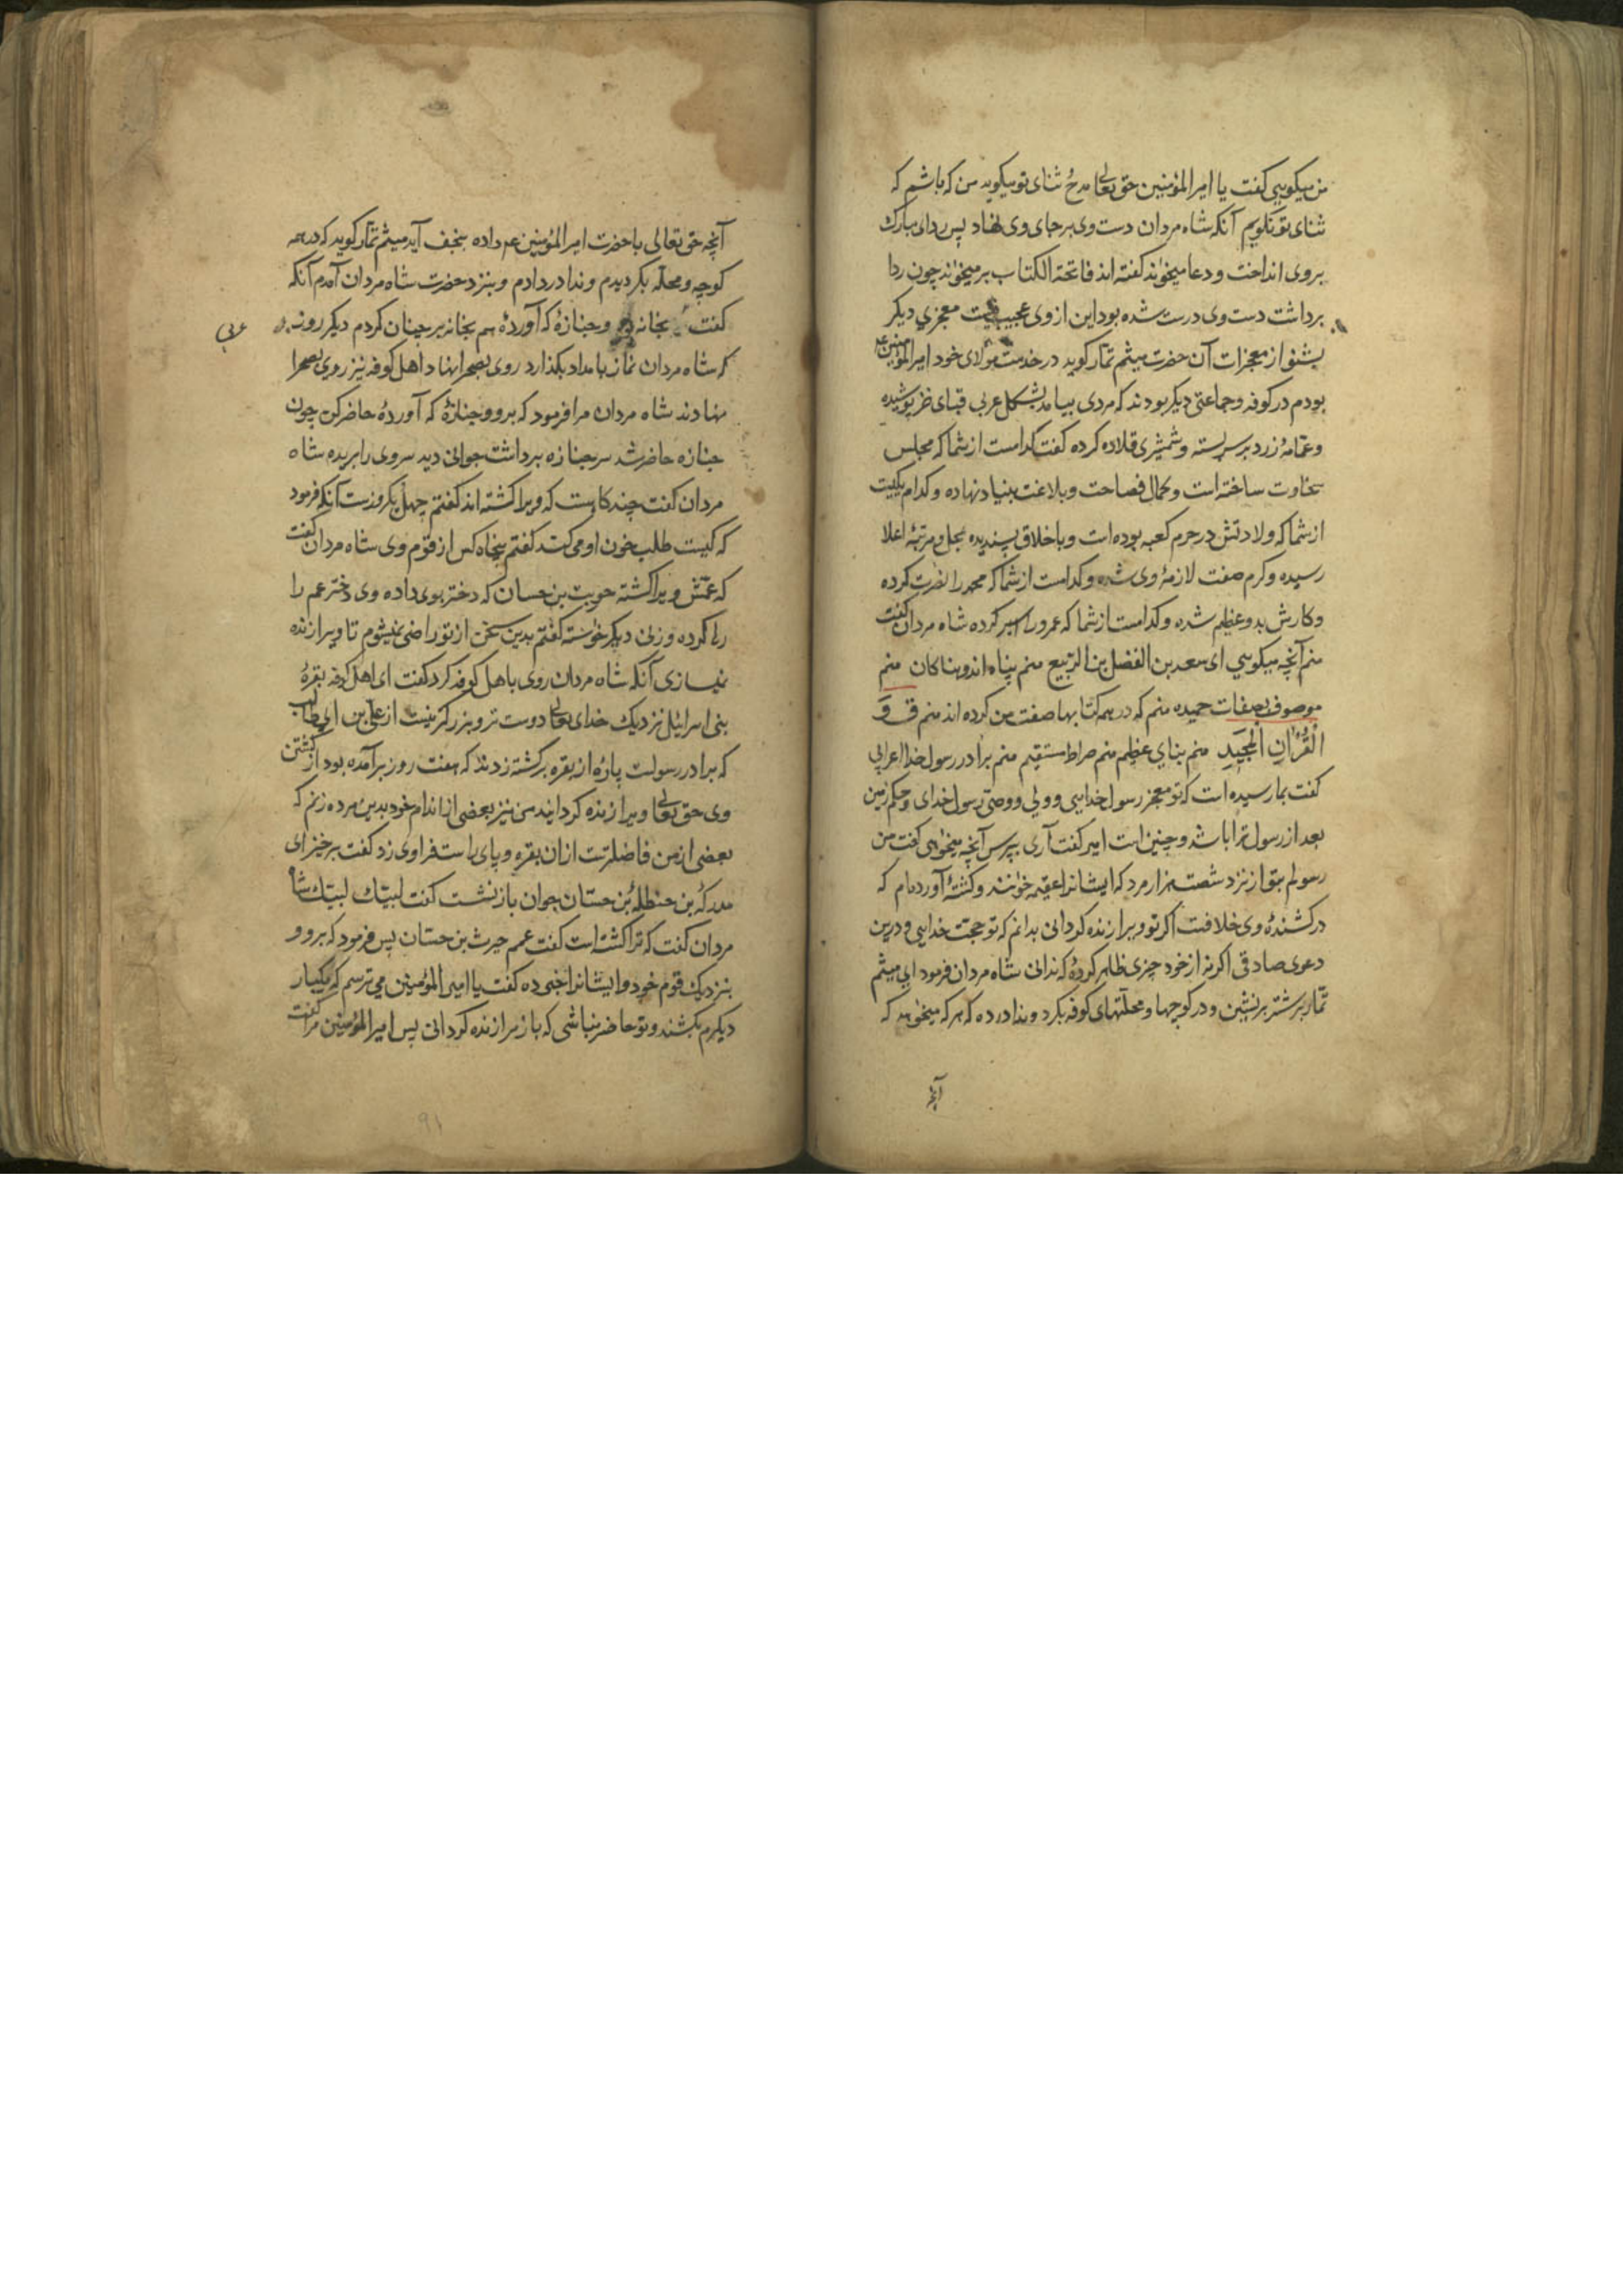 من میکویی کفت یا امیر المؤمنین حق تعالی مدح ثنای تو میکوید من که باشم که
ثنای تو نکویم آنکه شاه مردان دست وی بر جای وی نهاد پس ردای مبارک
بروی انداخت و دعا میخواند کفته اند فاتحة الکتاب بر میخواند چون ردا
برداشت دست وی درست شده بود این از وی عجیب نیست معجزی دیکر
بشنو از معجزات آن حضرت میثم تمّار کوید در خدمت مولای خود امیر المؤمنین ع
بودم در کوفه و جماعتی دیکر بودند که مردی بیامد بشکل عربی قبای خز پوشیده
و عمّامهٔ زرد بر سر بسته و شمشیری قلاده کرده کفت کدامست از شما که مجلس
سخاوت ساخته است و کمال فصاحت و بلاغت بنیاد نهاده و کدام یکیست
از شما که ولادتش در حرم کعبه بوده است و با خلاق پسندیده بمحل و مرتبهٔ اعلا
رسیده و کرم صفت لازمهٔ وی شده و کدامست از شما که محمد را نصرت کرده
و کارش بدو عظیم شده و کدامست از شما که عمرو را اسیر کرده شاه مردان کفت
منم آنچه میکویی ای سعد بن الفضل بن الربیع منم پناه اندوهناکان منم
موصوف بصفات حمیده منم که در همه کتابها صفت من کرده اند منم ق وَ
الْقُرْانِ الْمَجِیدِ منم بنای عظیم منم صراط مستقیم منم برادر رسول خدا اعرابی
کفت بما رسیده است که تو معجز رسول خدایی و ولی و وصی رسول خدای و حکم زمین
بعد از رسول ترا باشد و چنین است امیر کفت آری بپرس آنچه میخواهی کفت من
رسولم بتو از نزد شصت هزار مرد که ایشانرا عقیمه خوانند و کشتهٔ آورده‌ام که
در کشندهٔ وی خلافست اکر تو ویرا زنده کردانی بدانم که تو حجت خدایی و درین
دعوی صادقی اکر نه از خود چیزی ظاهر کردهٔ که ندانی شاه مردان فرمود ای میثم
تمّار بر شتر بر نشین و در کوچها و محلّتهای کوفه بکرد و ندا در ده که هر که میخواهد که
آنچه
آنچه حق تعالی با حضرت امیر المؤمنین ع م داده بنجف آید میثم تمّار کوید که در همه
کوچه و محلّه بکردیدم و ندا در دادم و بنزد حضرت شاه مردان آمدم آنکه
کفت بخانه و جنازهٔ که آوردهٔ هم بخانه بر چنان کردم دیکر روز
عربی
که شاه مردان نماز بامداد بکذارد روی بصحرا نهاد اهل کوفه نیز روی بصحرا
نهادند شاه مردان مرا فرمود که برو و جنازهٔ که آوردهٔ حاضر کن چون
جنازه حاضر شد سر جنازه برداشت جوانی دید سر وی را بریده شاه
مردان کفت چند کاهست که ویرا کشته اند کفتم چهل و یکروزست آنکه فرمود
که کیست طلب خون او می کند کفتم پنجاه کس از قوم وی شاه مردان کفت
که عمّش ویرا کشته حریث بن حسان که دختر بوی داده وی دختر عم را
رها کرده و زنی دیکر خواسته کفتم بدین سخن از تو راضی نمیشوم تا ویرا زنده
نسازی آنکه شاه مردان روی باهل کوفه کرد کفت ای اهل کوفه بقرهٔ
بنی اسرائیل نزدیک خدای تعالی دوست تر و بزرکتر نیست از علی بن ابی طالب
که برادر رسولست پارهٔ از بقره بر کشته زدند که هفت روز بر آمده بود از کشتن
وی حق تعالی ویرا زنده کردانید من نیز بعضی از اندام خود بدین مرده زنم که
بعضی از من فاضلترست از ان بقره و پای راست فرا وی زد کفت بر خیز ای
مدرکهٔ بن حنظلهٔ بن حسّان جوان باز نشست کفت لبیّک لبیّک شاه
مردان کفت که ترا کشته است کفت عمم حریث بن حسّان پس فرمود که برو و
بنزدیک قوم خود و ایشانرا خبر ده کفت یا امیر المؤمنین می ترسم که یکبار
دیکرم بکشند و تو حاضر نباشی که باز مرا زنده کردانی پس امیر المؤمنین مرا کفت
۹۱